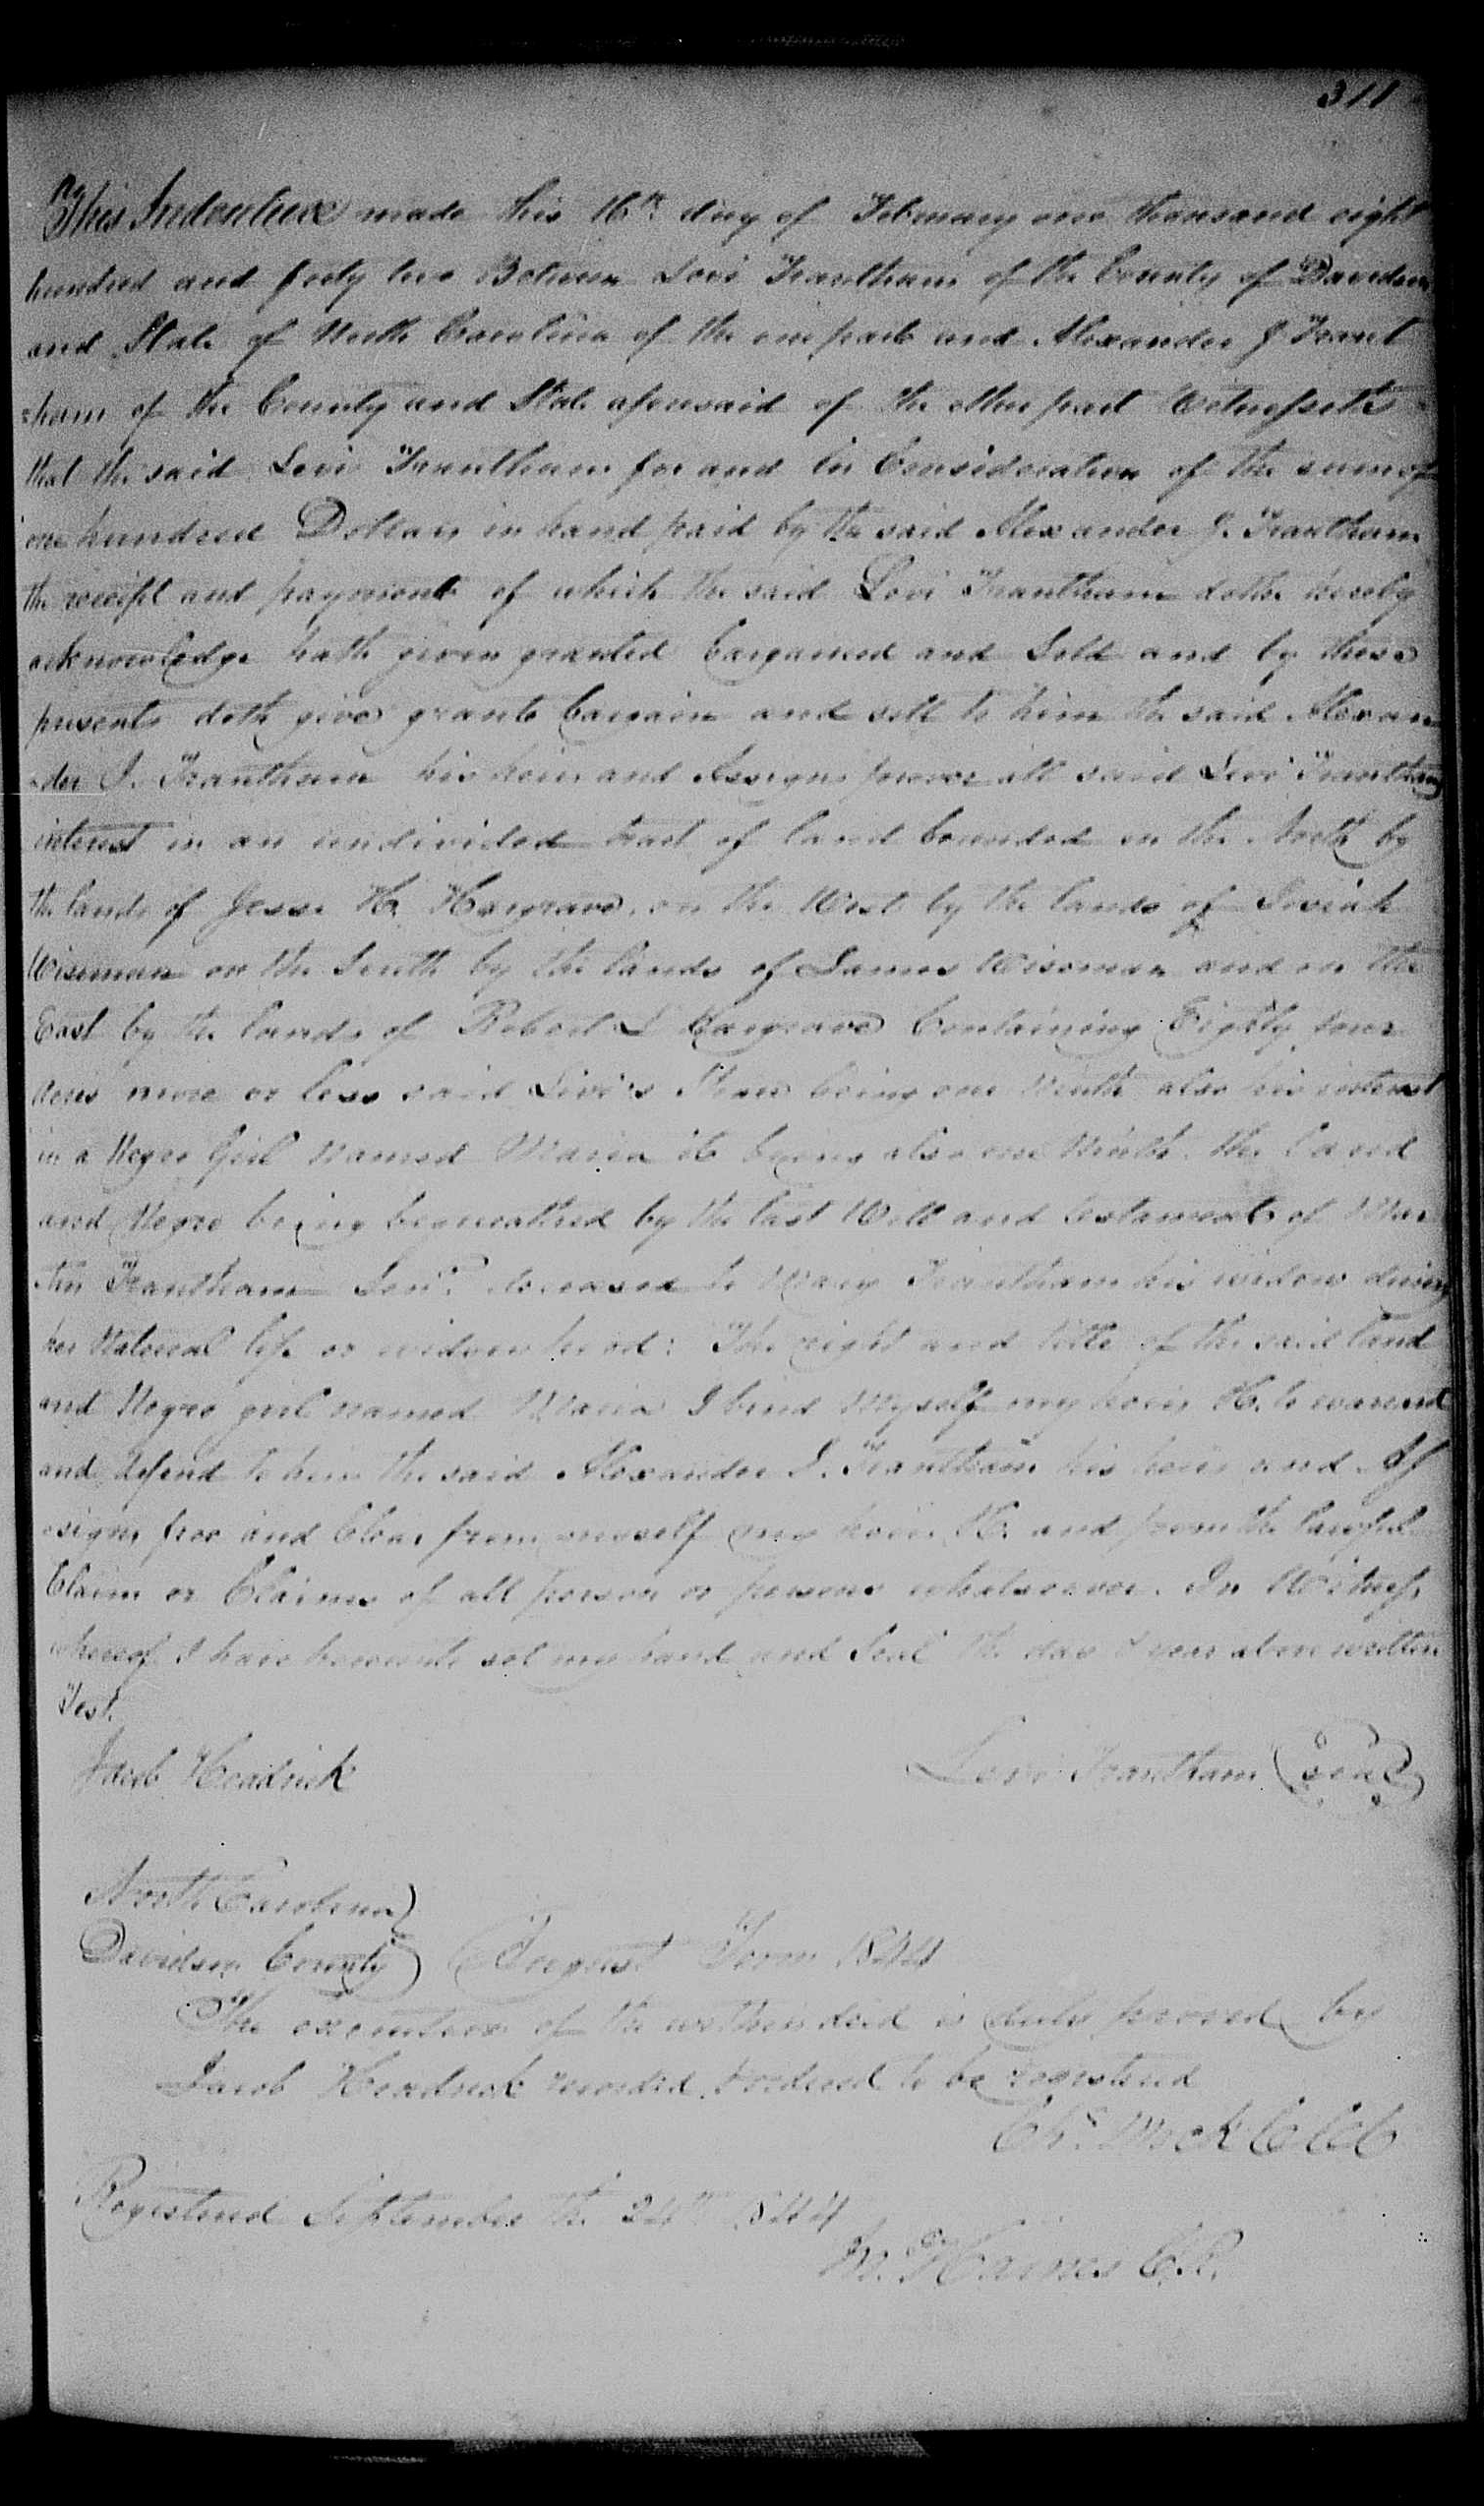 311
This Indenture made this 16th day of February one thousand eight
hundred and forty two Between Levi Trantham of the County of Davidson
and State of North Carolina of the one part and Alexander J Trant
=ham of the County and State aforesaid of the other part Witnesseth
that the said Levi Trantham for and in Consideration of the sum of
one hundred Dollars in hand paid by the said Alexander J. Trantham
the receipt and payment of which the said Levi Trantham doth hereby
acknowledge hath given granted bargained and Sold and by these
presents doth give grant bargain and sell to him the said Alexan
-der J. Trantham his heirs and Assigns forever all said Levi Tranthams
interest in an undivided tract of land bounded on the North by
the lands of Jesse H. Hargrave, on the West by the lands of
Wiseman on the South by the lands of James Wiseman and on the
East by the lands of Robert L Hargrave Containing Eighty four
acres more or less said Levi's Share being one Ninth also his interest
in a Negro Girl Named Maria it being also one Ninth. the land
and Negro being bequeathed by the last Will and testament of Mar
-tin Trantham Senr. deceased to Mary Trantham his widow during
her Natural life or widowhood: The right and title of the said land
and Negro girl named Maria I bind Myself my heirs &c. to warrant
and defend to him the said Alexander J. Trantham his heirs and As
-signs free and Clear from myself my heirs &c. and from the lawful
Claim or Claims of all person or persons whatsoever. In Witness
whereof I have hereunto set my hand and Seal the day & year above written
Test.
Jacob Headrick Levi Trantham (seal)
North Carolina)
Davidson County) August Term 1844
The execution of the within deed is duly proved by
Jacob Headrick recorded & ordered to be registered
Chs. Mock CCC
Registered September the 24th 1844
Haines